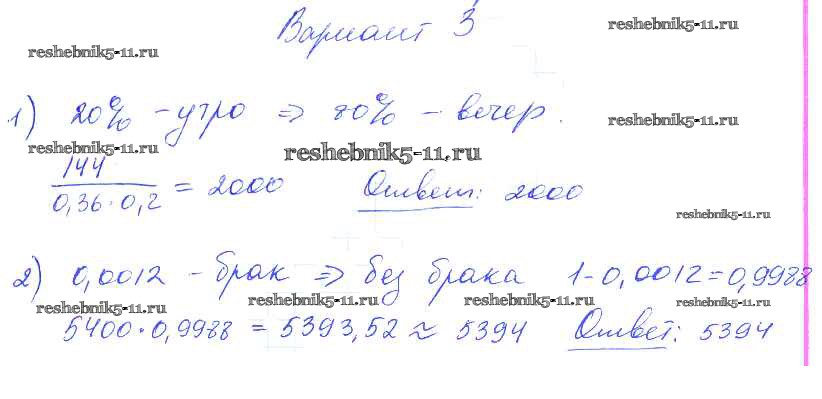 Вариант 3
reshebnik5-11.ru
reshebnik5-11.ru
1) 20% - утро ⇒ 80% - вечер.
reshebnik5-11.ru
reshebnik5-11.ru
reshebnik5-11.ru
144
0,36·0,2 = 2000 Ответ: 2000
reshebnik5-11.ru
2) 0,0012 - брак ⇒ без брака 1-0,0012=0,9988
reshebnik5-11.ru
reshebnik5-11.ru
reshebnik5-11.ru
reshebnik5-11.ru
5400·0,9988 = 5393,52 ≈ 5394 Ответ: 5394